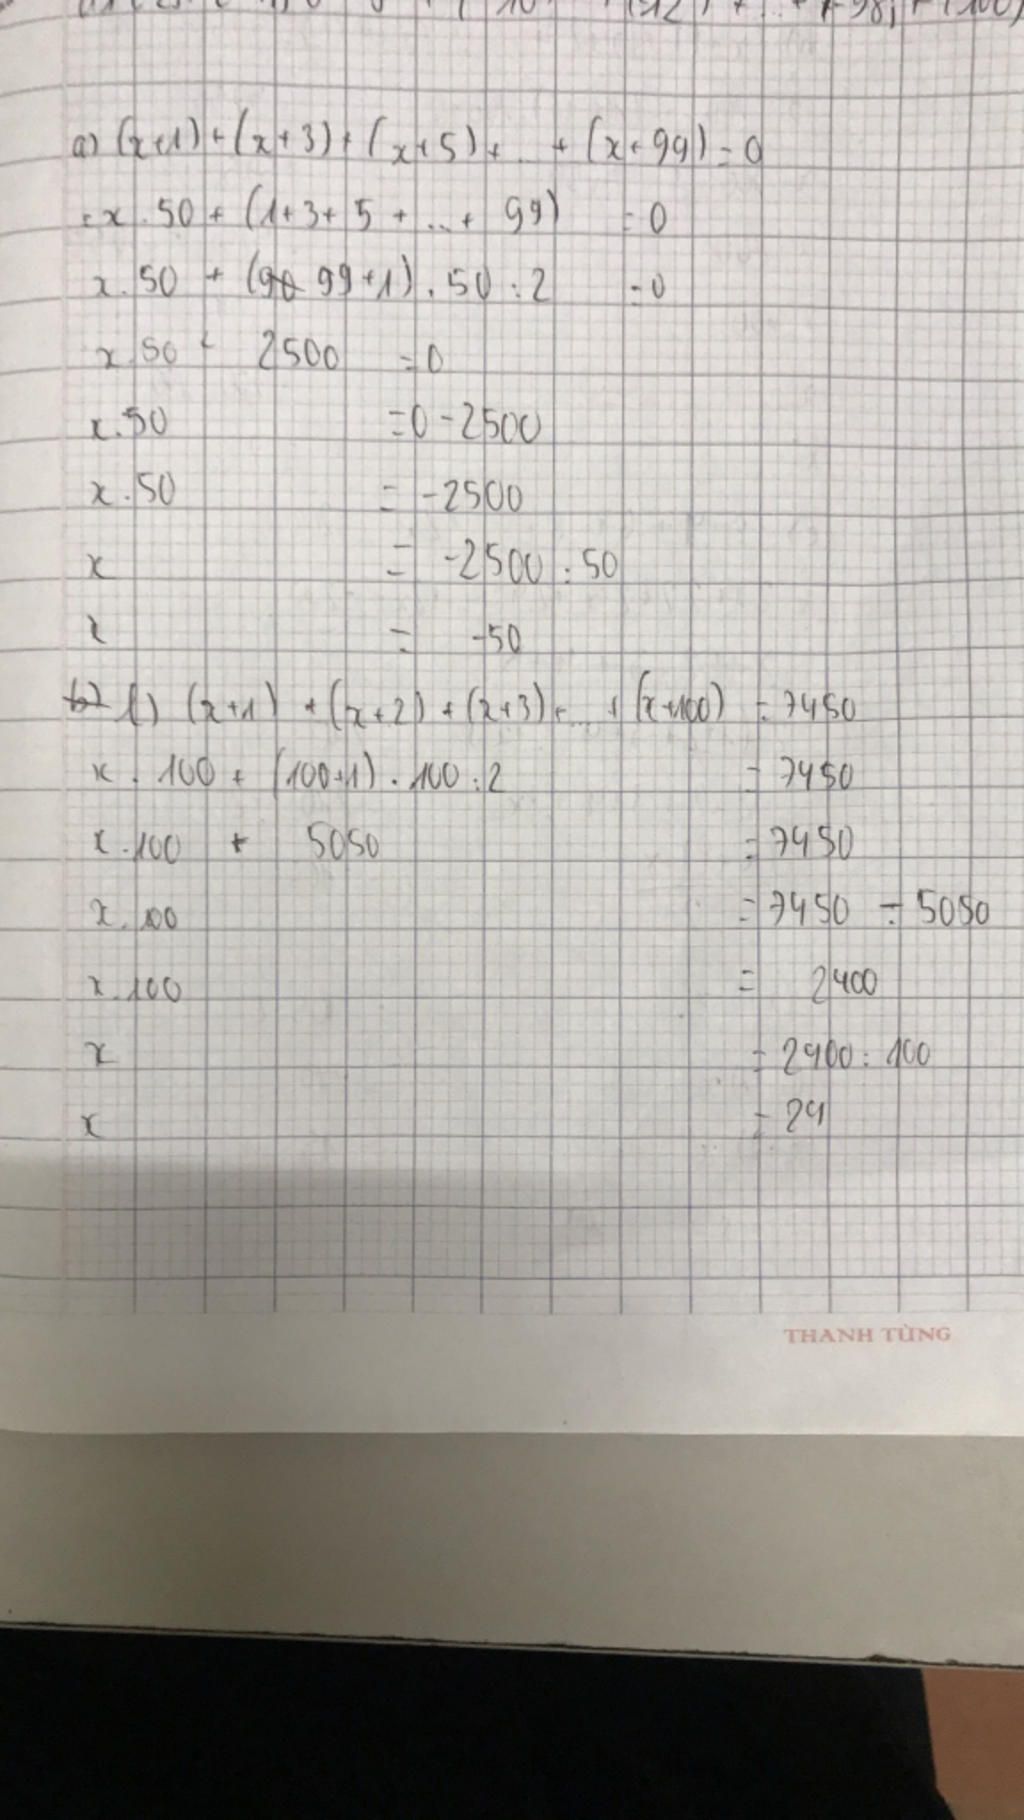 a) (x+1)+(x+3)+(x+5)+...+(x+99)=0
=x.50+(1+3+5+...+99) =0
x.50+(99+1).50:2 =0
x.50+ 2500 =0
x.50 =0-2500
x.50 = -2500
x = -2500:50
x = -50
b) (x+1)+(x+2)+(x+3)+...+(x+100) = 7450
x.100+(100+1).100:2 = 7450
x.100 + 5050 = 7450
x.100 = 7450 - 5050
x.100 = 2400
x = 2400:100
x = 24
THANH TÙNG